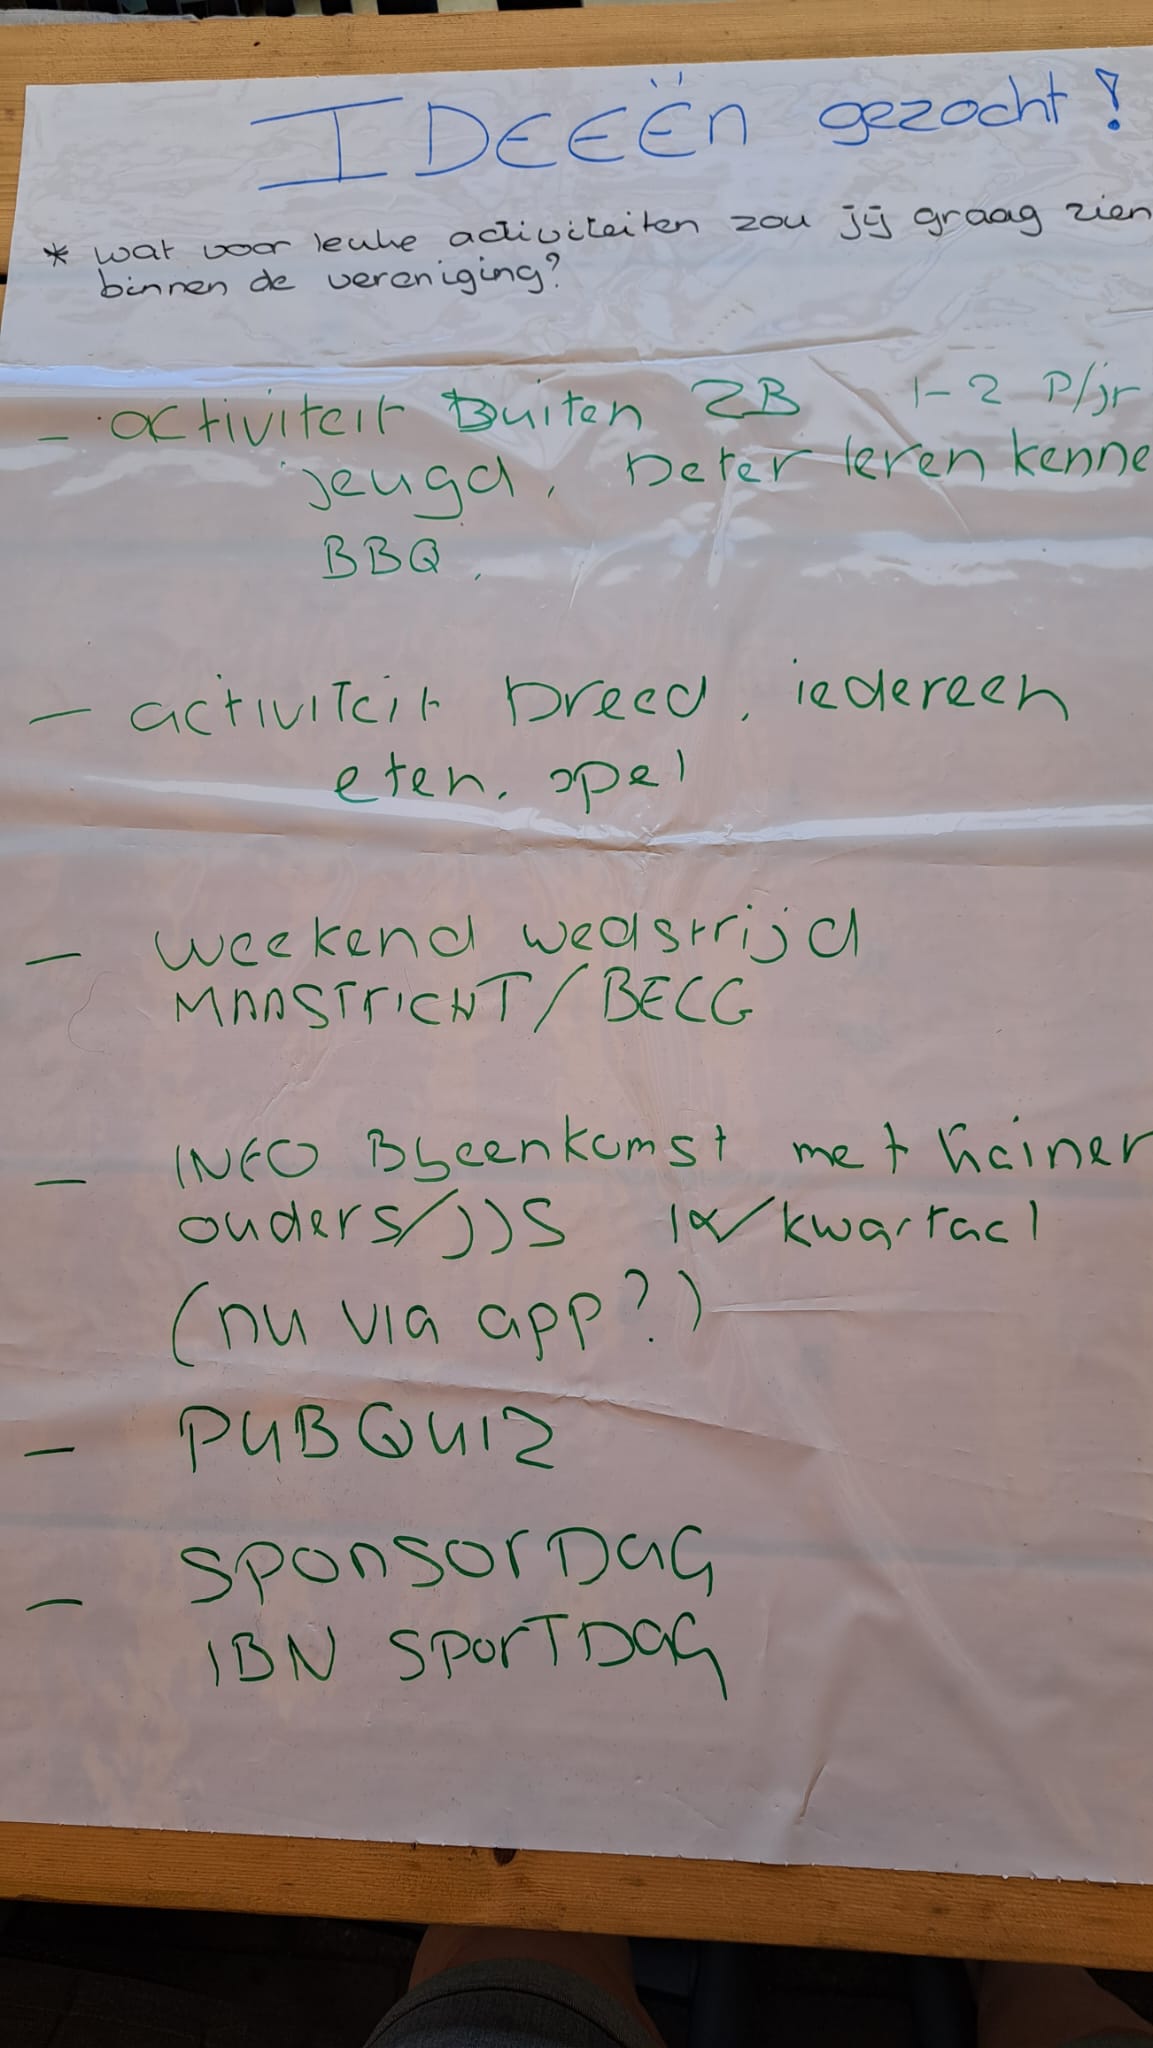 IDEEËN gezocht!
* wat voor leuke activiteiten zou jij graag zien
binnen de vereniging?
- activiteit Buiten ZB 1-2 P/jr
jeugd, beter leren kenne
BBQ.
- activiteit breed. iedereen
eten. spel
- weekend wedstrijd
MAASTRICHT/BECG
- INFO Bijeenkomst met trainer
ouders/JJS 1x/kwartaal
(nu via app?)
- PUBQUIZ
- SPONSORDAG
IBN SPORTDAG